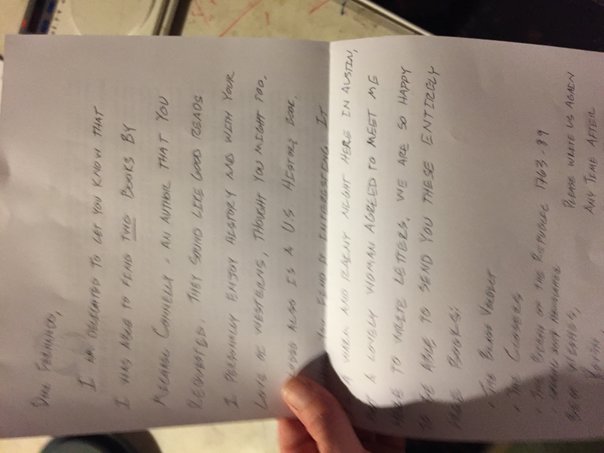 DEAR FERNANDO,
I AM DELIGHTED TO LET YOU KNOW THAT
I WAS ABLE TO FIND TWO BOOKS BY
MICHAEL CONNELLY - AN AUTHOR THAT YOU
REQUESTED. THEY SOUND LIKE GOOD READS
I PERSONALLY ENJOY HISTORY AND WITH YOUR
LOVE OF WESTERNS, THOUGHT YOU MIGHT TOO.
ALSO IS A U.S. HISTORY BOOK.
YOU FIND IT INTERESTING. IT
WARM AND RAINY NIGHT HERE IN AUSTIN,
A LOVELY WOMAN AGREED TO MEET ME
HERE TO WRITE LETTERS. WE ARE SO HAPPY
TO BE ABLE TO SEND YOU THESE ENTIRELY
FREE BOOKS:
• THE BLACK VERDICT
• THE CLOSERS
• THE BIRTH OF THE REPUBLIC 1763-89
BEST WISHES,
PLEASE WRITE US AGAIN
ANY TIME AFTER